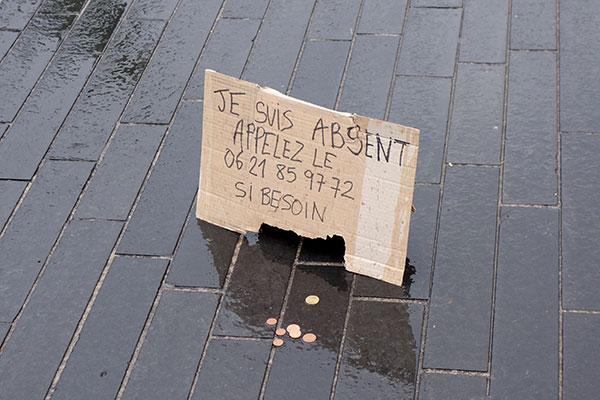 JE SUIS ABSENT
APPELEZ LE
06 21 85 97 72
SI BESOIN